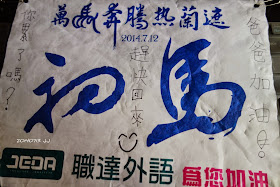 萬馬奔騰熱蘭遮
2014.7.12
你累了嗎?
趕快回來
爸爸加油!
初馬
ZONGYA JJ
JEDA 職達外語 為您加油